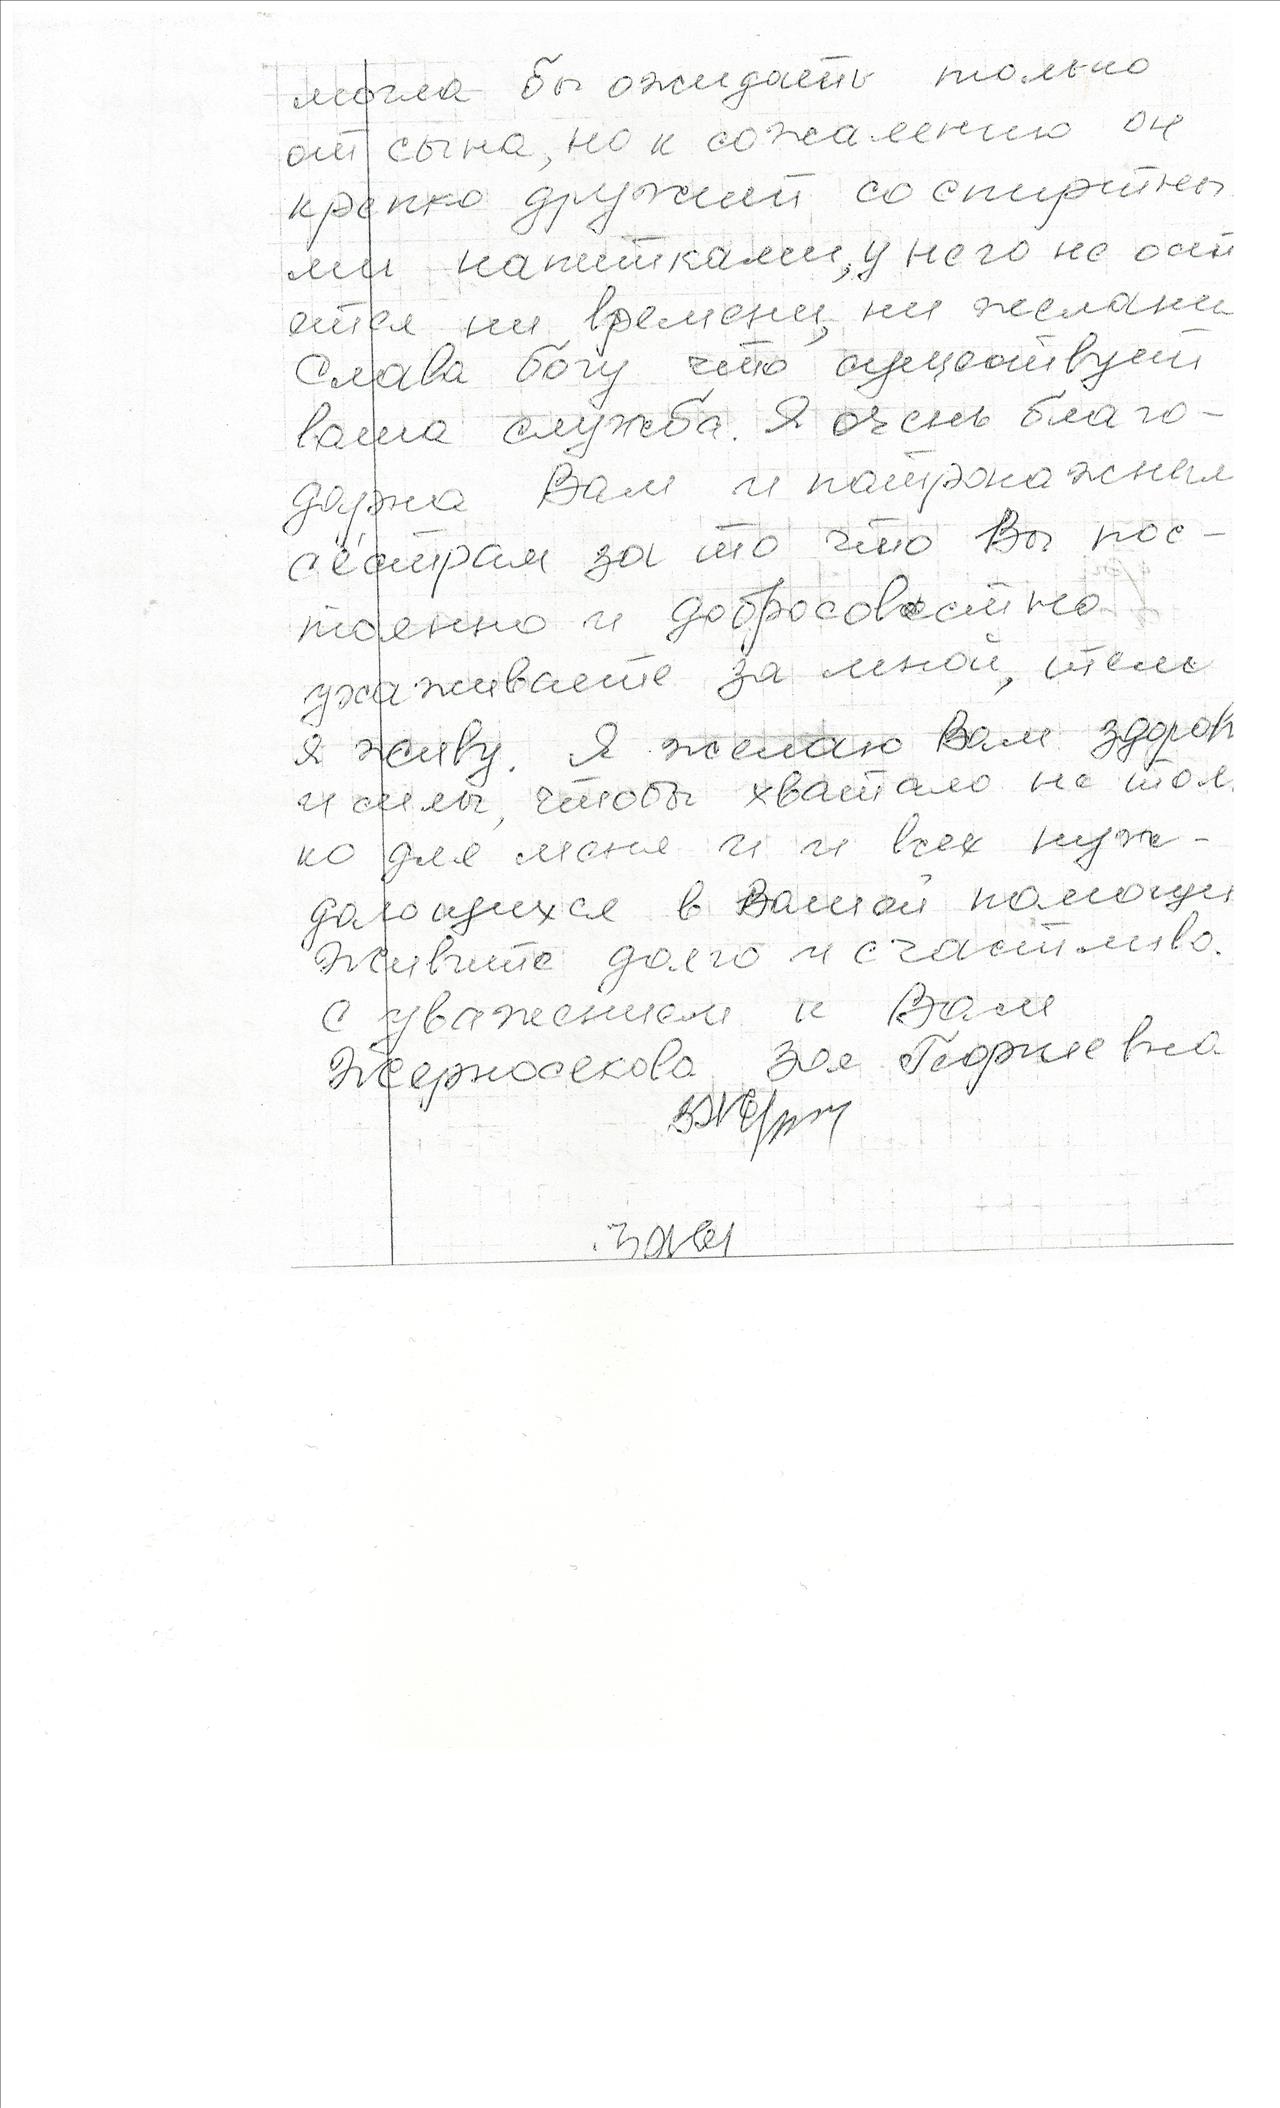 могла бы ожидать только
от сына, но к сожалению он
крепко дружит со спиртны
ми напитками, у него не ост
ется ни времени, ни желани
Слава богу что существует
ваша служба. Я очень благо-
дарна Вам и патронажным
сёстрам за то что Вы пос-
тоянно и добросовестно
ухаживаете за мной, тем
я живу. Я желаю Вам здоров
и силы, чтобы хватало не тол
ко для меня и и всех нуж-
дающихся в Вашей помощи
Живите долго и счастливо.
С уважением к Вам
Жерносекова Зоя